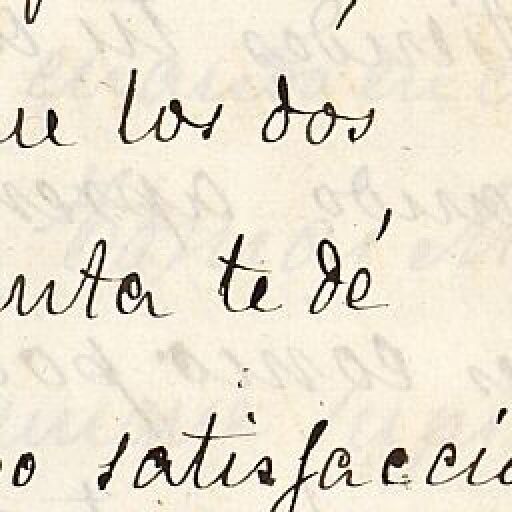 ue los dos
nta te dé
o satisfacció